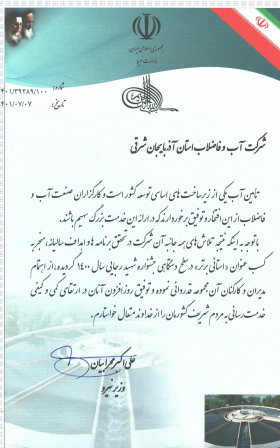 جمهوری اسلامی ایران
وزارت نیرو
شماره: ۱۴۰۱/۳۹۲۸۹/۱۰۰
تاریخ: ۱۴۰۱/۰۷/۰۷
شرکت آب و فاضلاب استان آذربایجان شرقی
تأمین آب یکی از زیرساخت های اساسی توسعه کشور است و کارگزاران صنعت آب و
فاضلاب از این افتخار و توفیق برخوردارند که در ارائه این خدمت بزرگ سهیم باشند.
با توجه به اینکه نتیجه تلاش های همه جانبه آن شرکت در تحقق برنامه ها و اهداف سالیانه، منجر به
کسب عنوان «استانی برتر» در سطح دستگاهی جشنواره شهید رجایی سال ۱۴۰۰ گردیده، از اهتمام
مدیران و کارکنان آن مجموعه قدردانی نموده و توفیق روزافزون آنان در ارتقای کمی و کیفی
خدمت رسانی به مردم شریف کشورمان را از خداوند متعال خواستارم.
علی اکبر محرابیان
وزیر نیرو